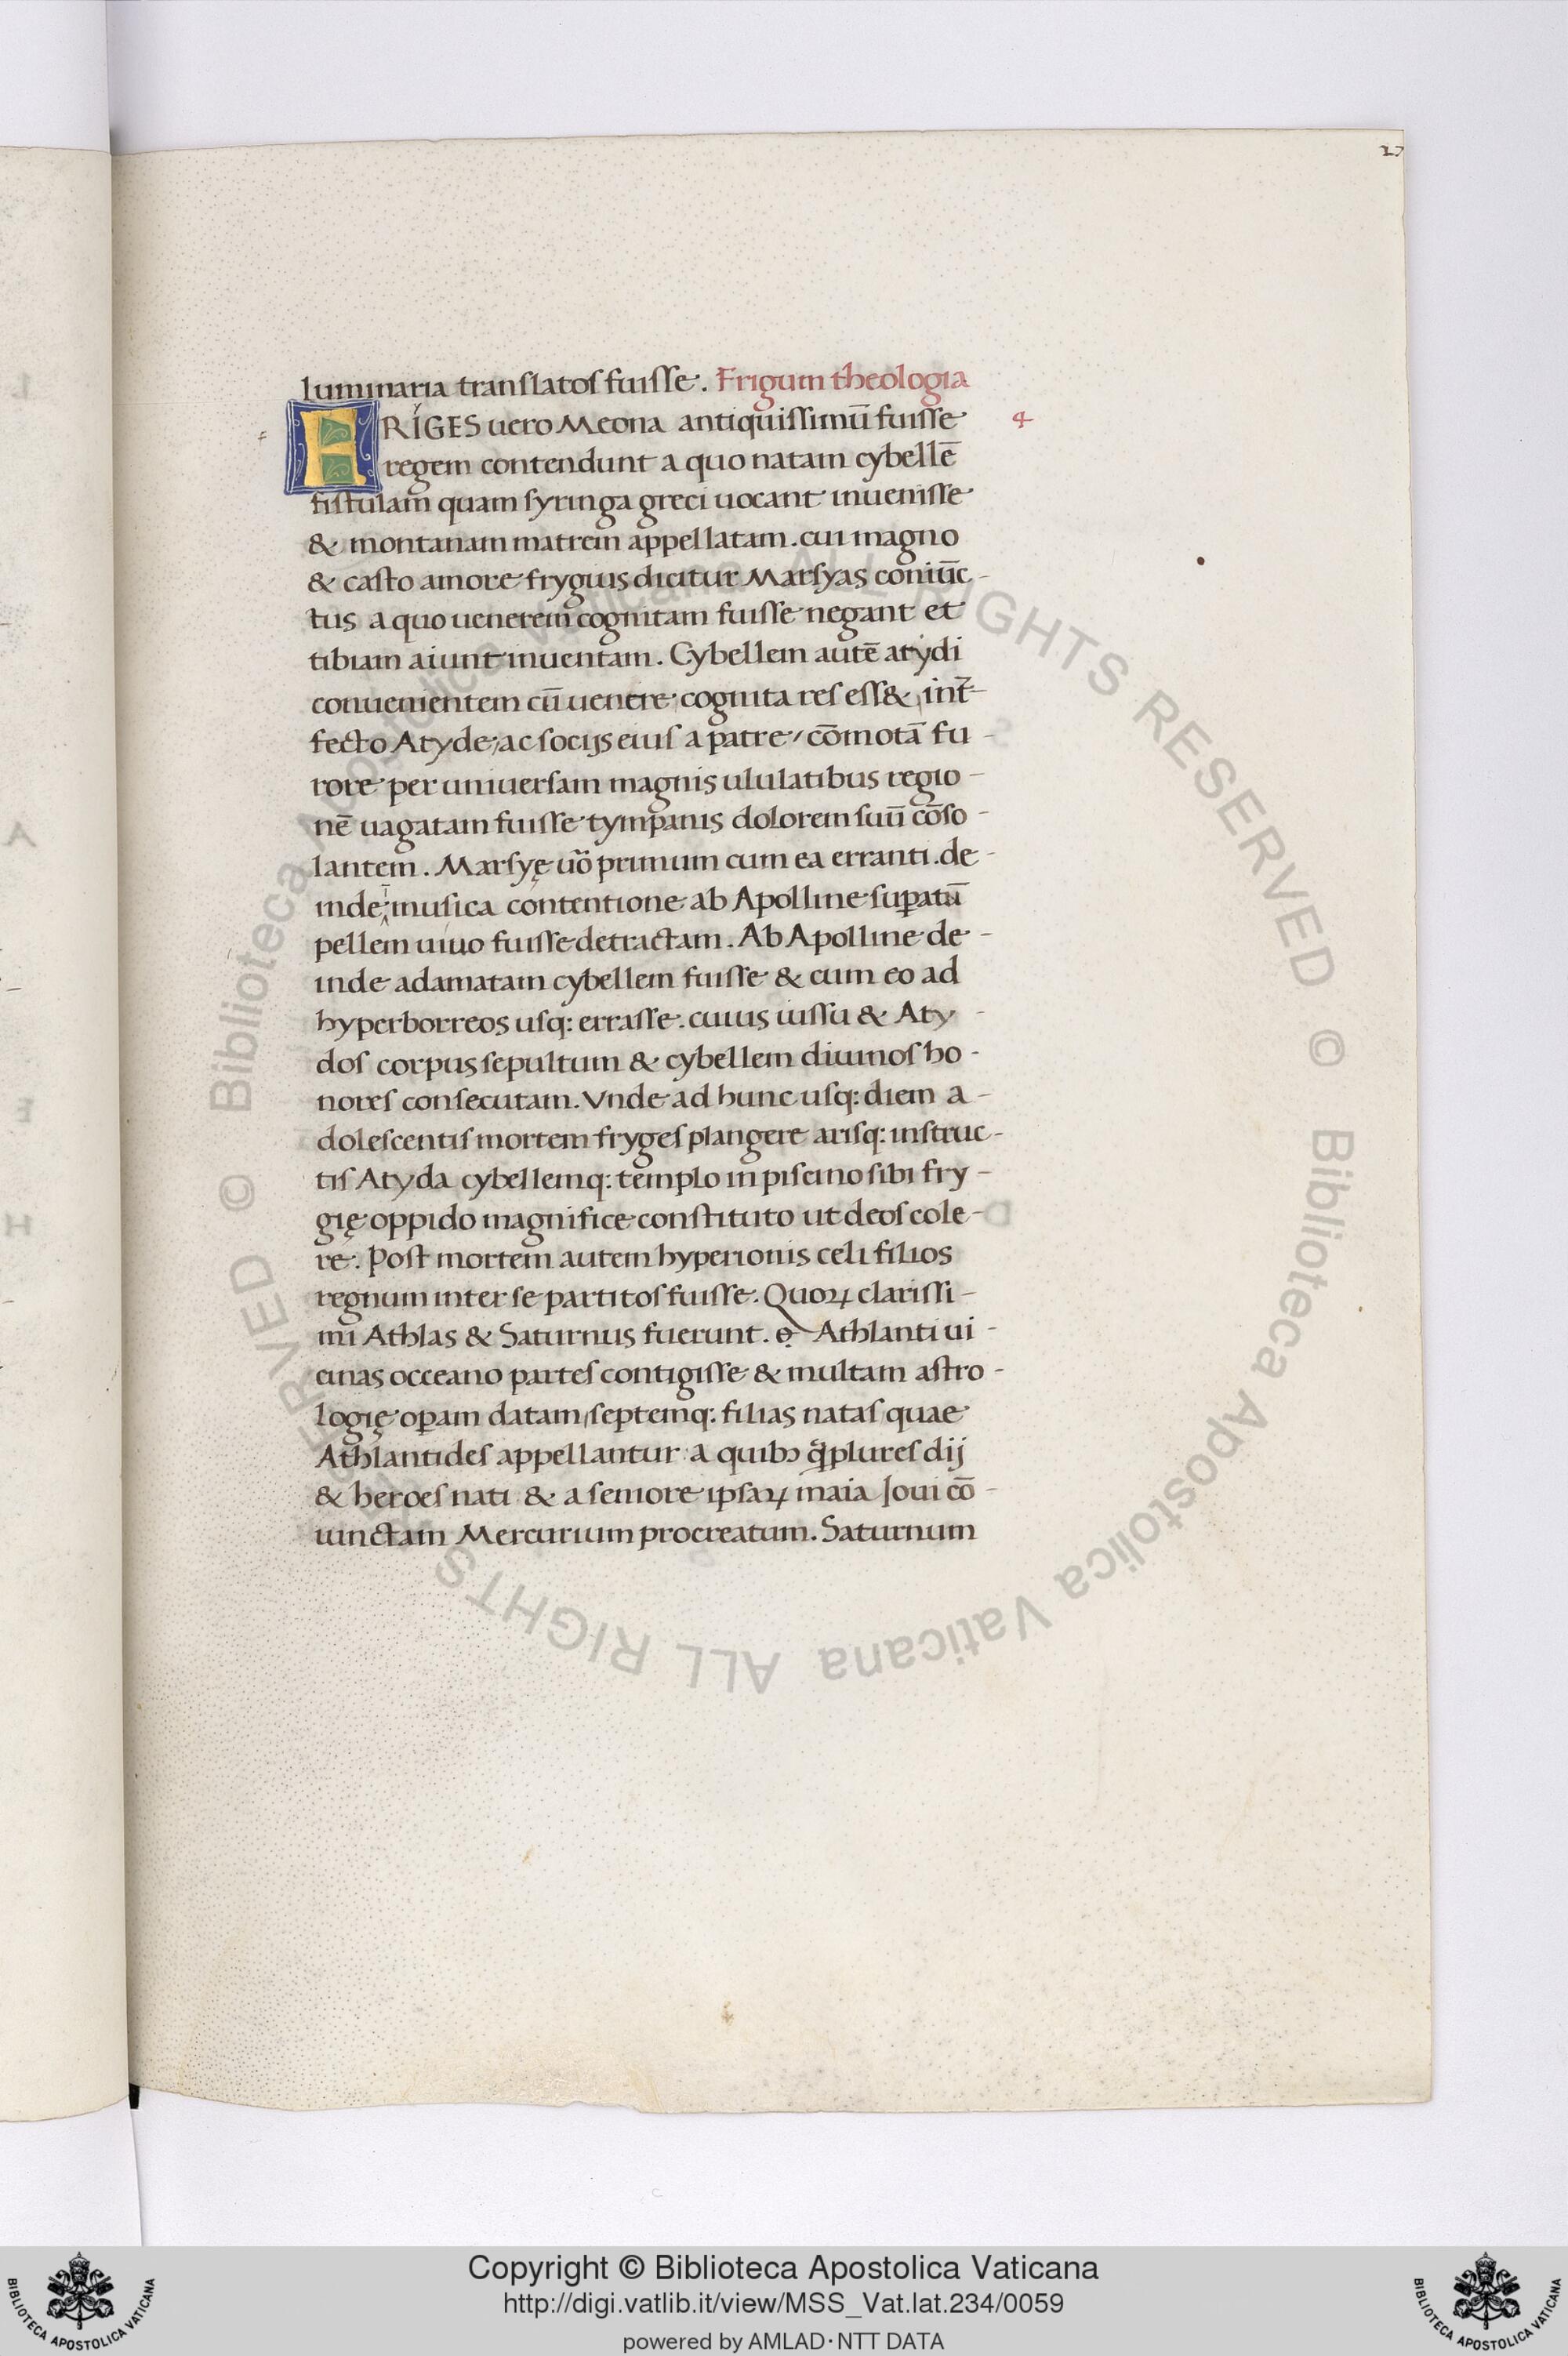 27
luminaria translatos fuisse. Frigum theologia
FRIGES uero Meona antiquissimū fuisse 4
regem contendunt a quo natam cybellē
fistulam quam syringa greci uocant inuenisse
& montanam matrem appellatam. cui magno
& casto amore frygius dicitur Marsyas coniūc-
tus a quo uenerem cognitam fuisse negant et
tibiam aiunt inuentam. Cybellem autē atydi
conuenientem cū uenere cognita res ess&, int̄-
fecto Atyde, ac socijs eius a patre, cōmotā fu-
rore per uniuersam magnis ululatibus regio-
nē uagatam fuisse tympanis dolorem suū cōso-
lantem. Marsyę uō primum cum ea erranti. de-
inde ī musica contentione ab Apolline suꝑatū
pellem uiuo fuisse detractam. Ab Apolline de-
inde adamatam cybellem fuisse & cum eo ad
hyperborreos usq: errasse. cuius iussu & Aty-
dos corpus sepultum & cybellem diuinos ho-
nores consecutam. Vnde ad hunc usq: diem a-
dolescentis mortem fryges plangere arisq: instruc-
tis Atyda cybellemq: templo in piscino sibi fry-
gię oppido magnifice constituto ut deos cole-
re. Post mortem autem hyperionis celi filios
regnum inter se partitos fuisse. Quoꝝ clarissi-
mi Athlas & Saturnus fuerunt. ę Athlanti ui-
cinas occeano partes contigisse & multam astro-
logię oꝑam datam, septemq: filias natas quae
Athlantides appellantur a quibꝰ q̄plures dij
& heroes nati & a seniore ipsaꝝ maia Ioui cō-
iunctam Mercurium procreatum. Saturnum
© Biblioteca Apostolica Vaticana ALL RIGHTS RESERVED © Biblioteca Apostolica Vaticana ALL RIGHTS RESERVED
Copyright © Biblioteca Apostolica Vaticana
http://digi.vatlib.it/view/MSS_Vat.lat.234/0059
powered by AMLAD·NTT DATA
BIBLIOTECA APOSTOLICA VATICANA
BIBLIOTECA APOSTOLICA VATICANA